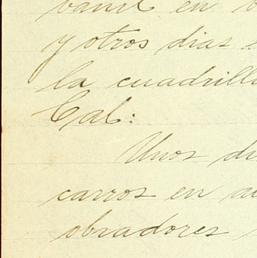 y otros dias
la cuadrill
Cal:
Unos di
carros en a
obradores